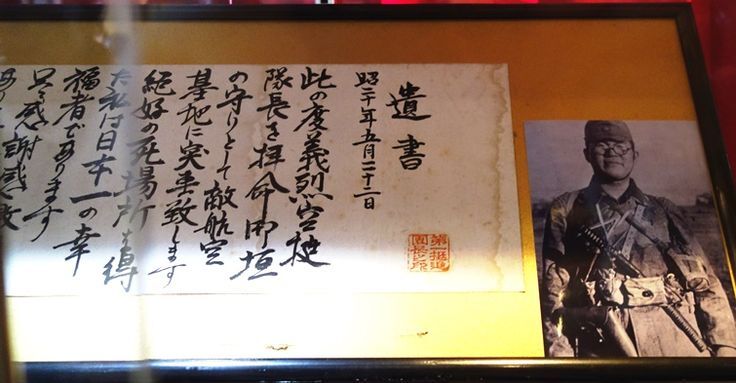 遺書
昭二十年五月二十二日
此の度義烈空挺
隊長を拝命御垣
の守りとして敵航空
基地に突撃致します
絶好の死場所を得
た私は日本一の幸
福者であります
只々感謝感激
第一挺進